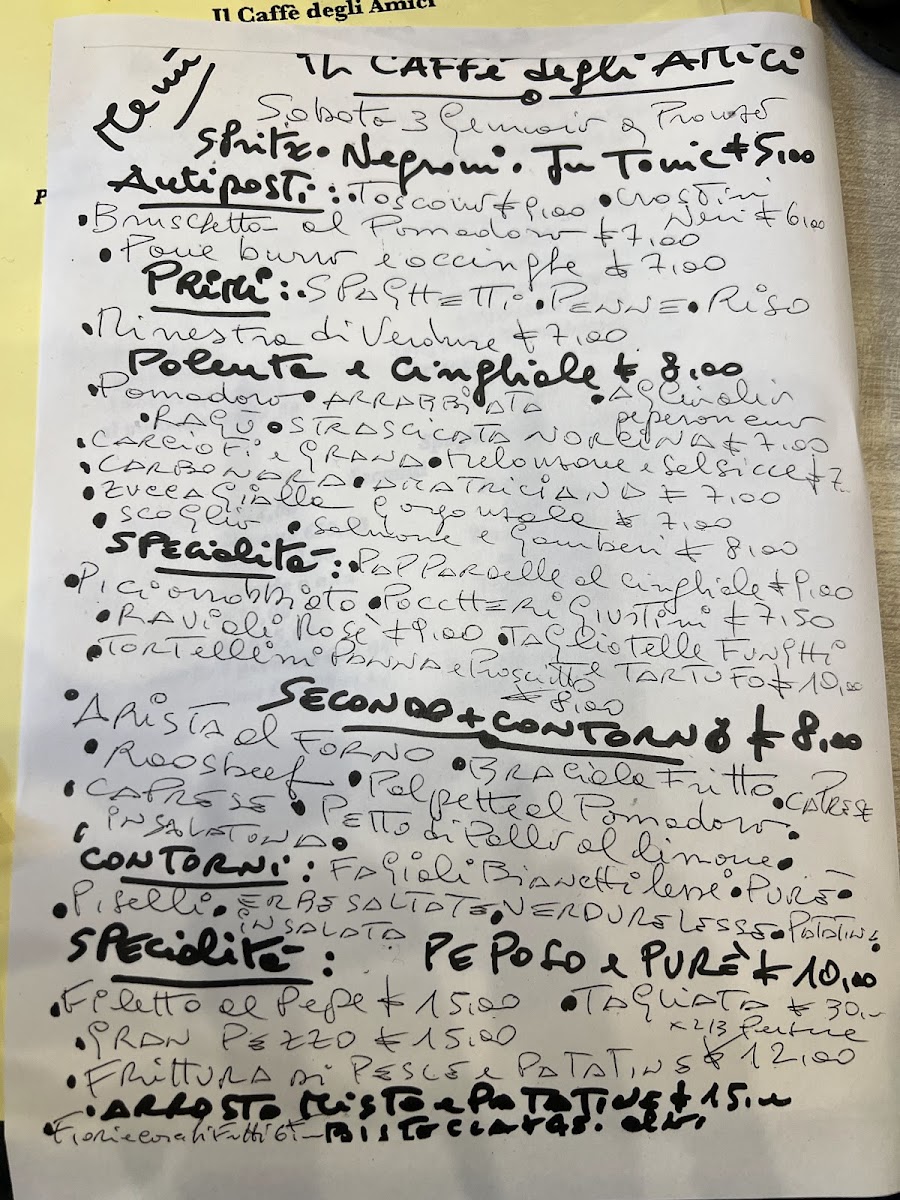 Il Caffè degli Amici
Menù
IL CAFFè degli AMici
Sabato 3 Gennaio a Pranzo
Spritz • Negroni • Jn Tonic € 5,00
Antipasti: • Toscano € 9,00 • Crostini
Neri € 6,00
• Bruschetta al Pomodoro € 7,00
• Pane burro e acciughe € 7,00
PRiMi: • SPAGHETTi • PENNE • Riso
• Minestra di Verdure € 7,00
Polenta e Cinghiale € 8,00
• Pomodoro • ARRABBiATA • Aglio olio
peperoncino
• RAGÙ • STRASCiCATA NORCiNA € 7,00
• CARCioFi e GRANA • Melanzane e Salsicce € 7
• CARBONARA • AMATRiCiANA € 7,00
• Zucca Gialla Gorgonzola € 7,00
• Scoglio • Salmone e Gamberi € 8,00
SPecialità: • PAPPARdelle al cinghiale € 9,00
• Pici arrabbiata • PaccHeRi GiusTini € 7,50
• RAVioli Rosè € 9,00 • TAGlioTelle FunGHi
e TARTUFO € 10,00
• TORTellini PANNA e Prosciutto
€ 8,00
SECONDO + CONTORNO € 8,00
• ARiSTA al FORNO
• Roosbeef • BRAciola FriTTo • CAPRESE
• CAPRESE • Polpette al Pomodoro •
• iNSALATONA • PETTO di Pollo al limone •
CONTORNi: FAGioli Bianchi lessi • PURÈ •
• Piselli • ERBE SALTATE • VERDURE LESSE • PATATiNE
iNSALATA
SPecialità: PEPOSO e PURÈ € 10,00
• Filetto al Pepe € 15,00 • TAGLiATA € 30,-
x 2/3 Persone
• GRAN PEZZO € 15,00
• FRiTTURA Di PESCE e PATATiNE € 12,00
• ARROSTO MiSTO e PATATiNE € 15,-